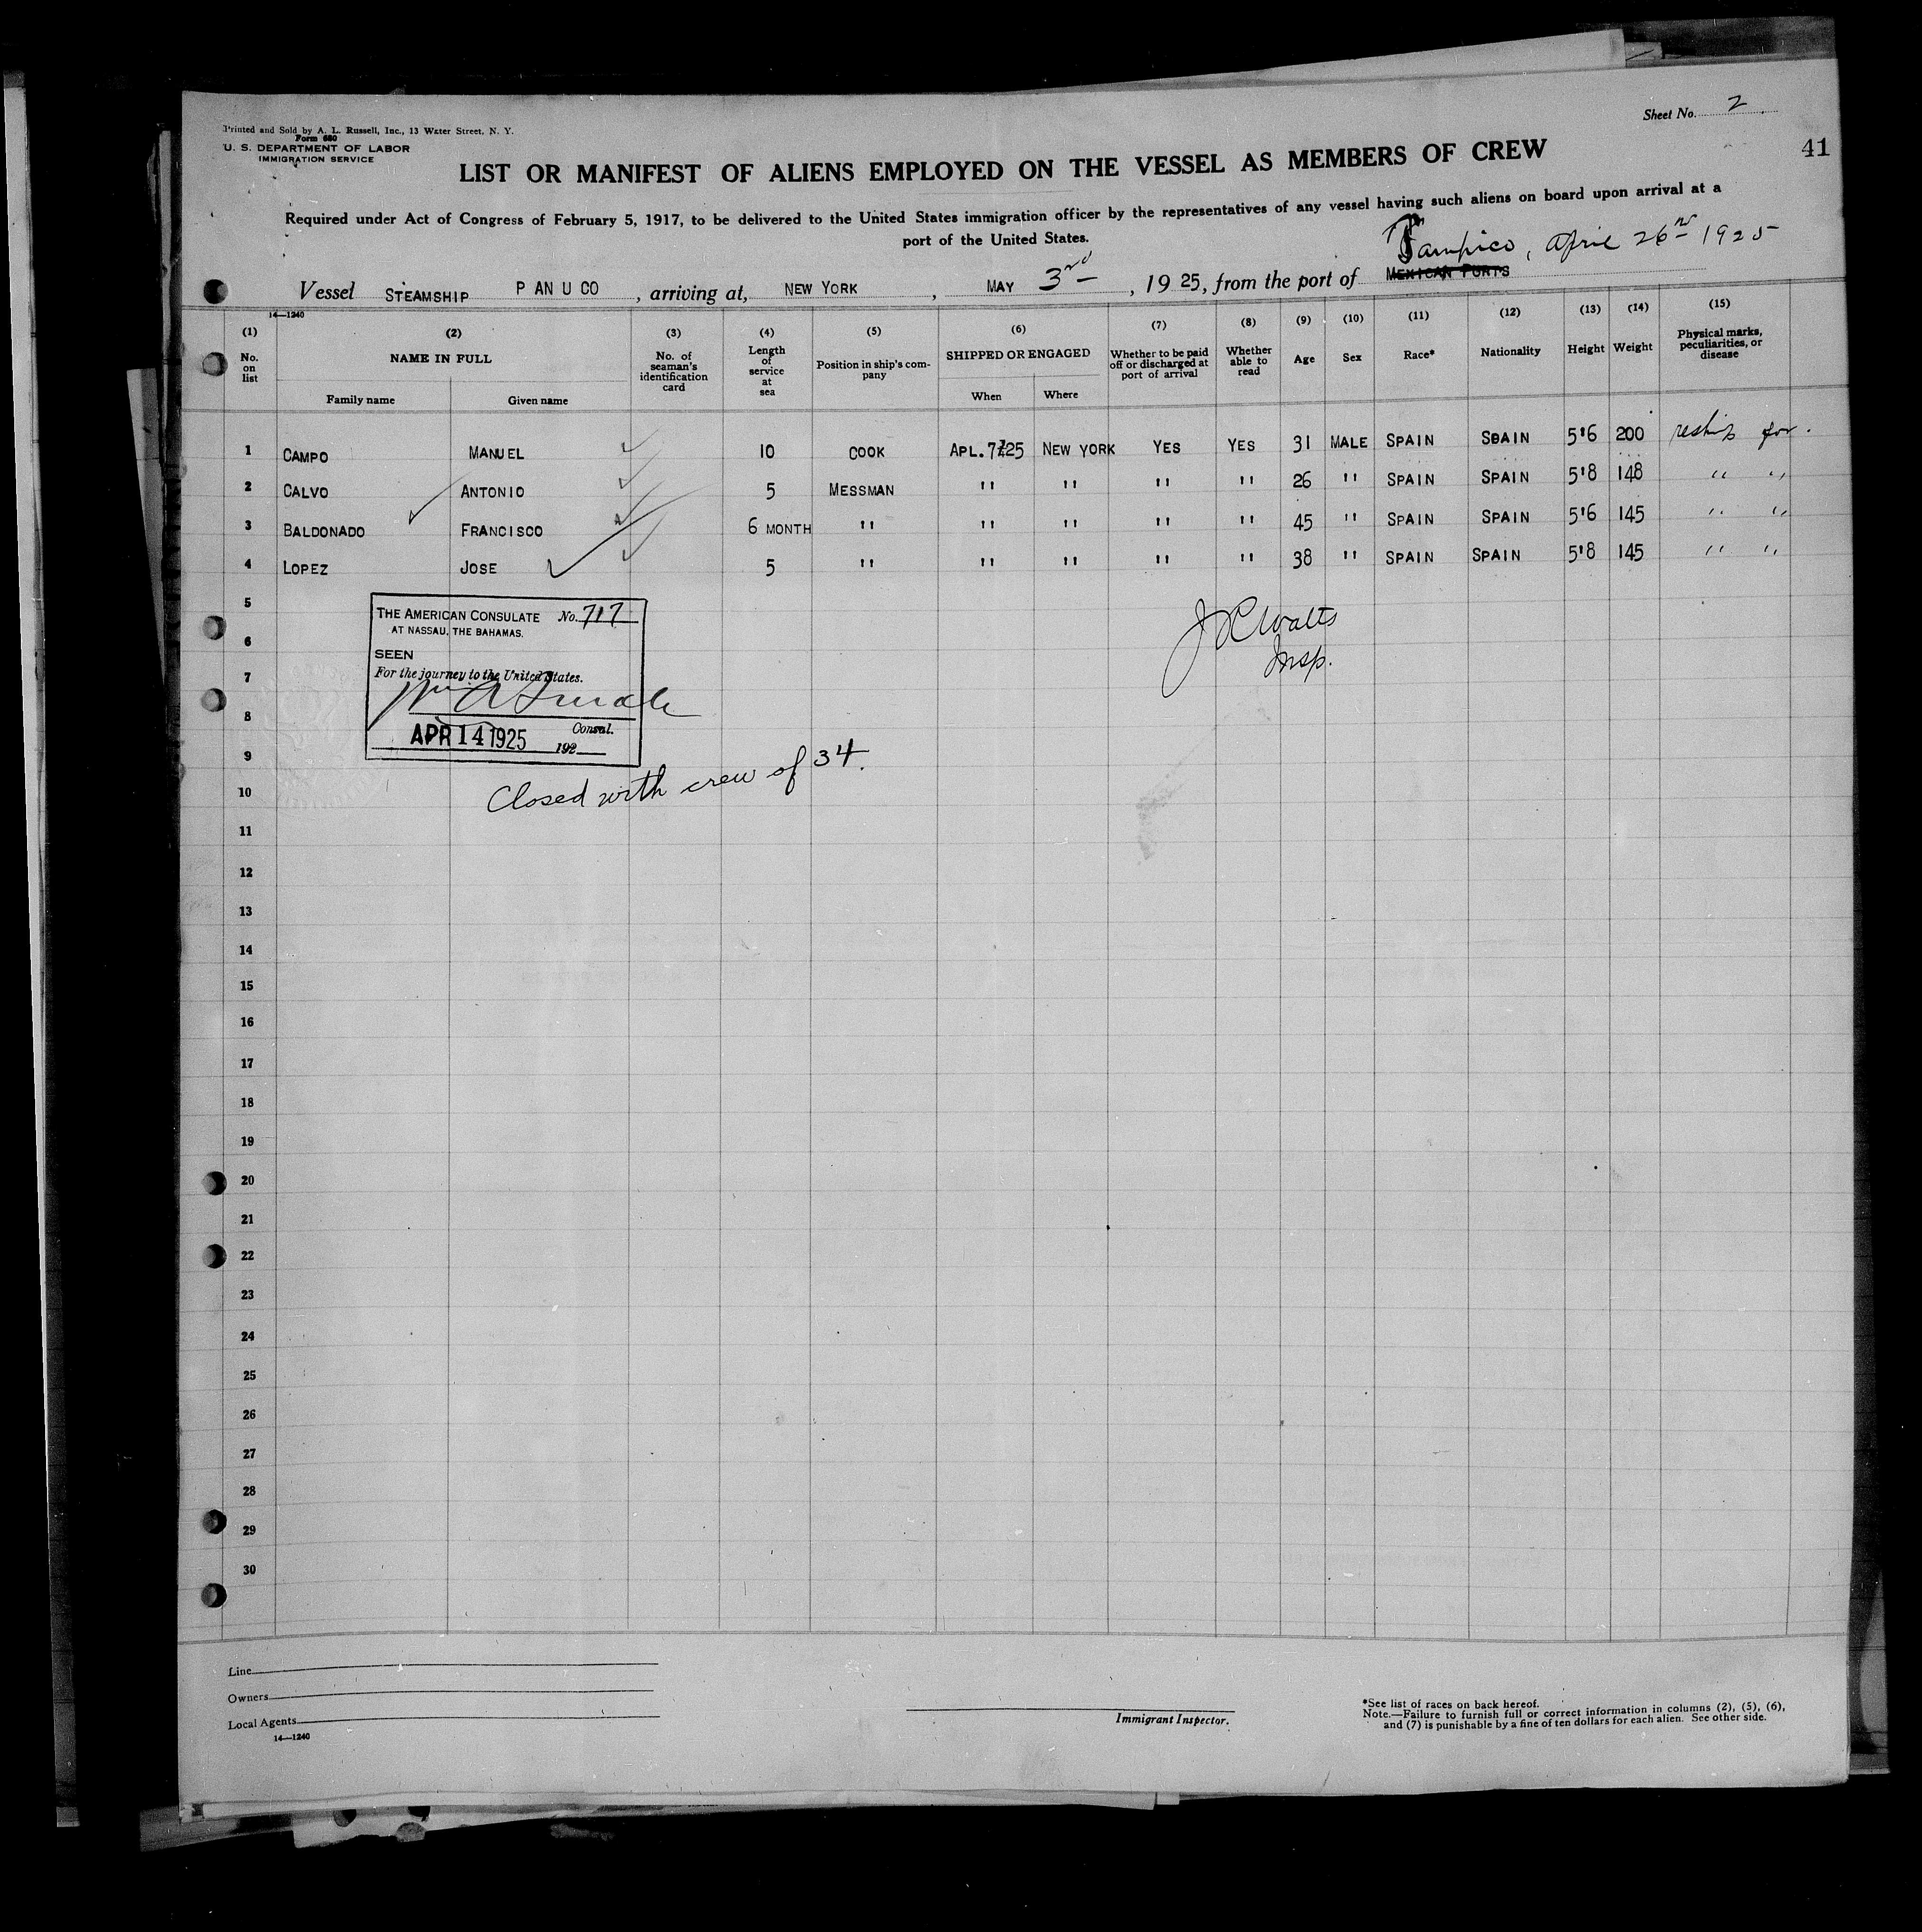 Sheet No. 2
41
Printed and Sold by A. L. Russell, Inc., 13 Water Street, N. Y.
Form 680
U. S. DEPARTMENT OF LABOR
IMMIGRATION SERVICE
LIST OR MANIFEST OF ALIENS EMPLOYED ON THE VESSEL AS MEMBERS OF CREW
Required under Act of Congress of February 5, 1917, to be delivered to the United States immigration officer by the representatives of any vessel having such aliens on board upon arrival at a
port of the United States.
Tampico, April 26 1925
Vessel STEAMSHIP P AN U CO, arriving at, NEW YORK, MAY 3rd, 19 25, from the port of MEXICAN PORTS
14—1240
(1) No. on list
(2) NAME IN FULL
Family name Given name
(3) No. of seaman's identification card
(4) Length of service at sea
(5) Position in ship's company
(6) SHIPPED OR ENGAGED
When Where
(7) Whether to be paid off or discharged at port of arrival
(8) Whether able to read
(9) Age
(10) Sex
(11) Race*
(12) Nationality
(13) Height
(14) Weight
(15) Physical marks, peculiarities, or disease
1 CAMPO MANUEL 10 COOK APL. 7 25 NEW YORK YES YES 31 MALE SPAIN SPAIN 5'6 200
2 CALVO ANTONIO 5 MESSMAN " " " " 26 " SPAIN SPAIN 5'8 148 " "
3 BALDONADO FRANCISCO 6 MONTH " " " " " 45 " SPAIN SPAIN 5'6 145 " "
4 LOPEZ JOSE 5 " " " " " 38 " SPAIN SPAIN 5'8 145 " "
5
6
7
8
9
10
THE AMERICAN CONSULATE No. 717
AT NASSAU, THE BAHAMAS.
SEEN
For the journey to the United States.
Consul.
APR 14 1925 192
Watts
Insp.
Closed with crew of 34.
11
12
13
14
15
16
17
18
19
20
21
22
23
24
25
26
27
28
29
30
Line
Owners
Local Agents
14—1240
Immigrant Inspector.
*See list of races on back hereof.
Note.—Failure to furnish full or correct information in columns (2), (5), (6),
and (7) is punishable by a fine of ten dollars for each alien. See other side.